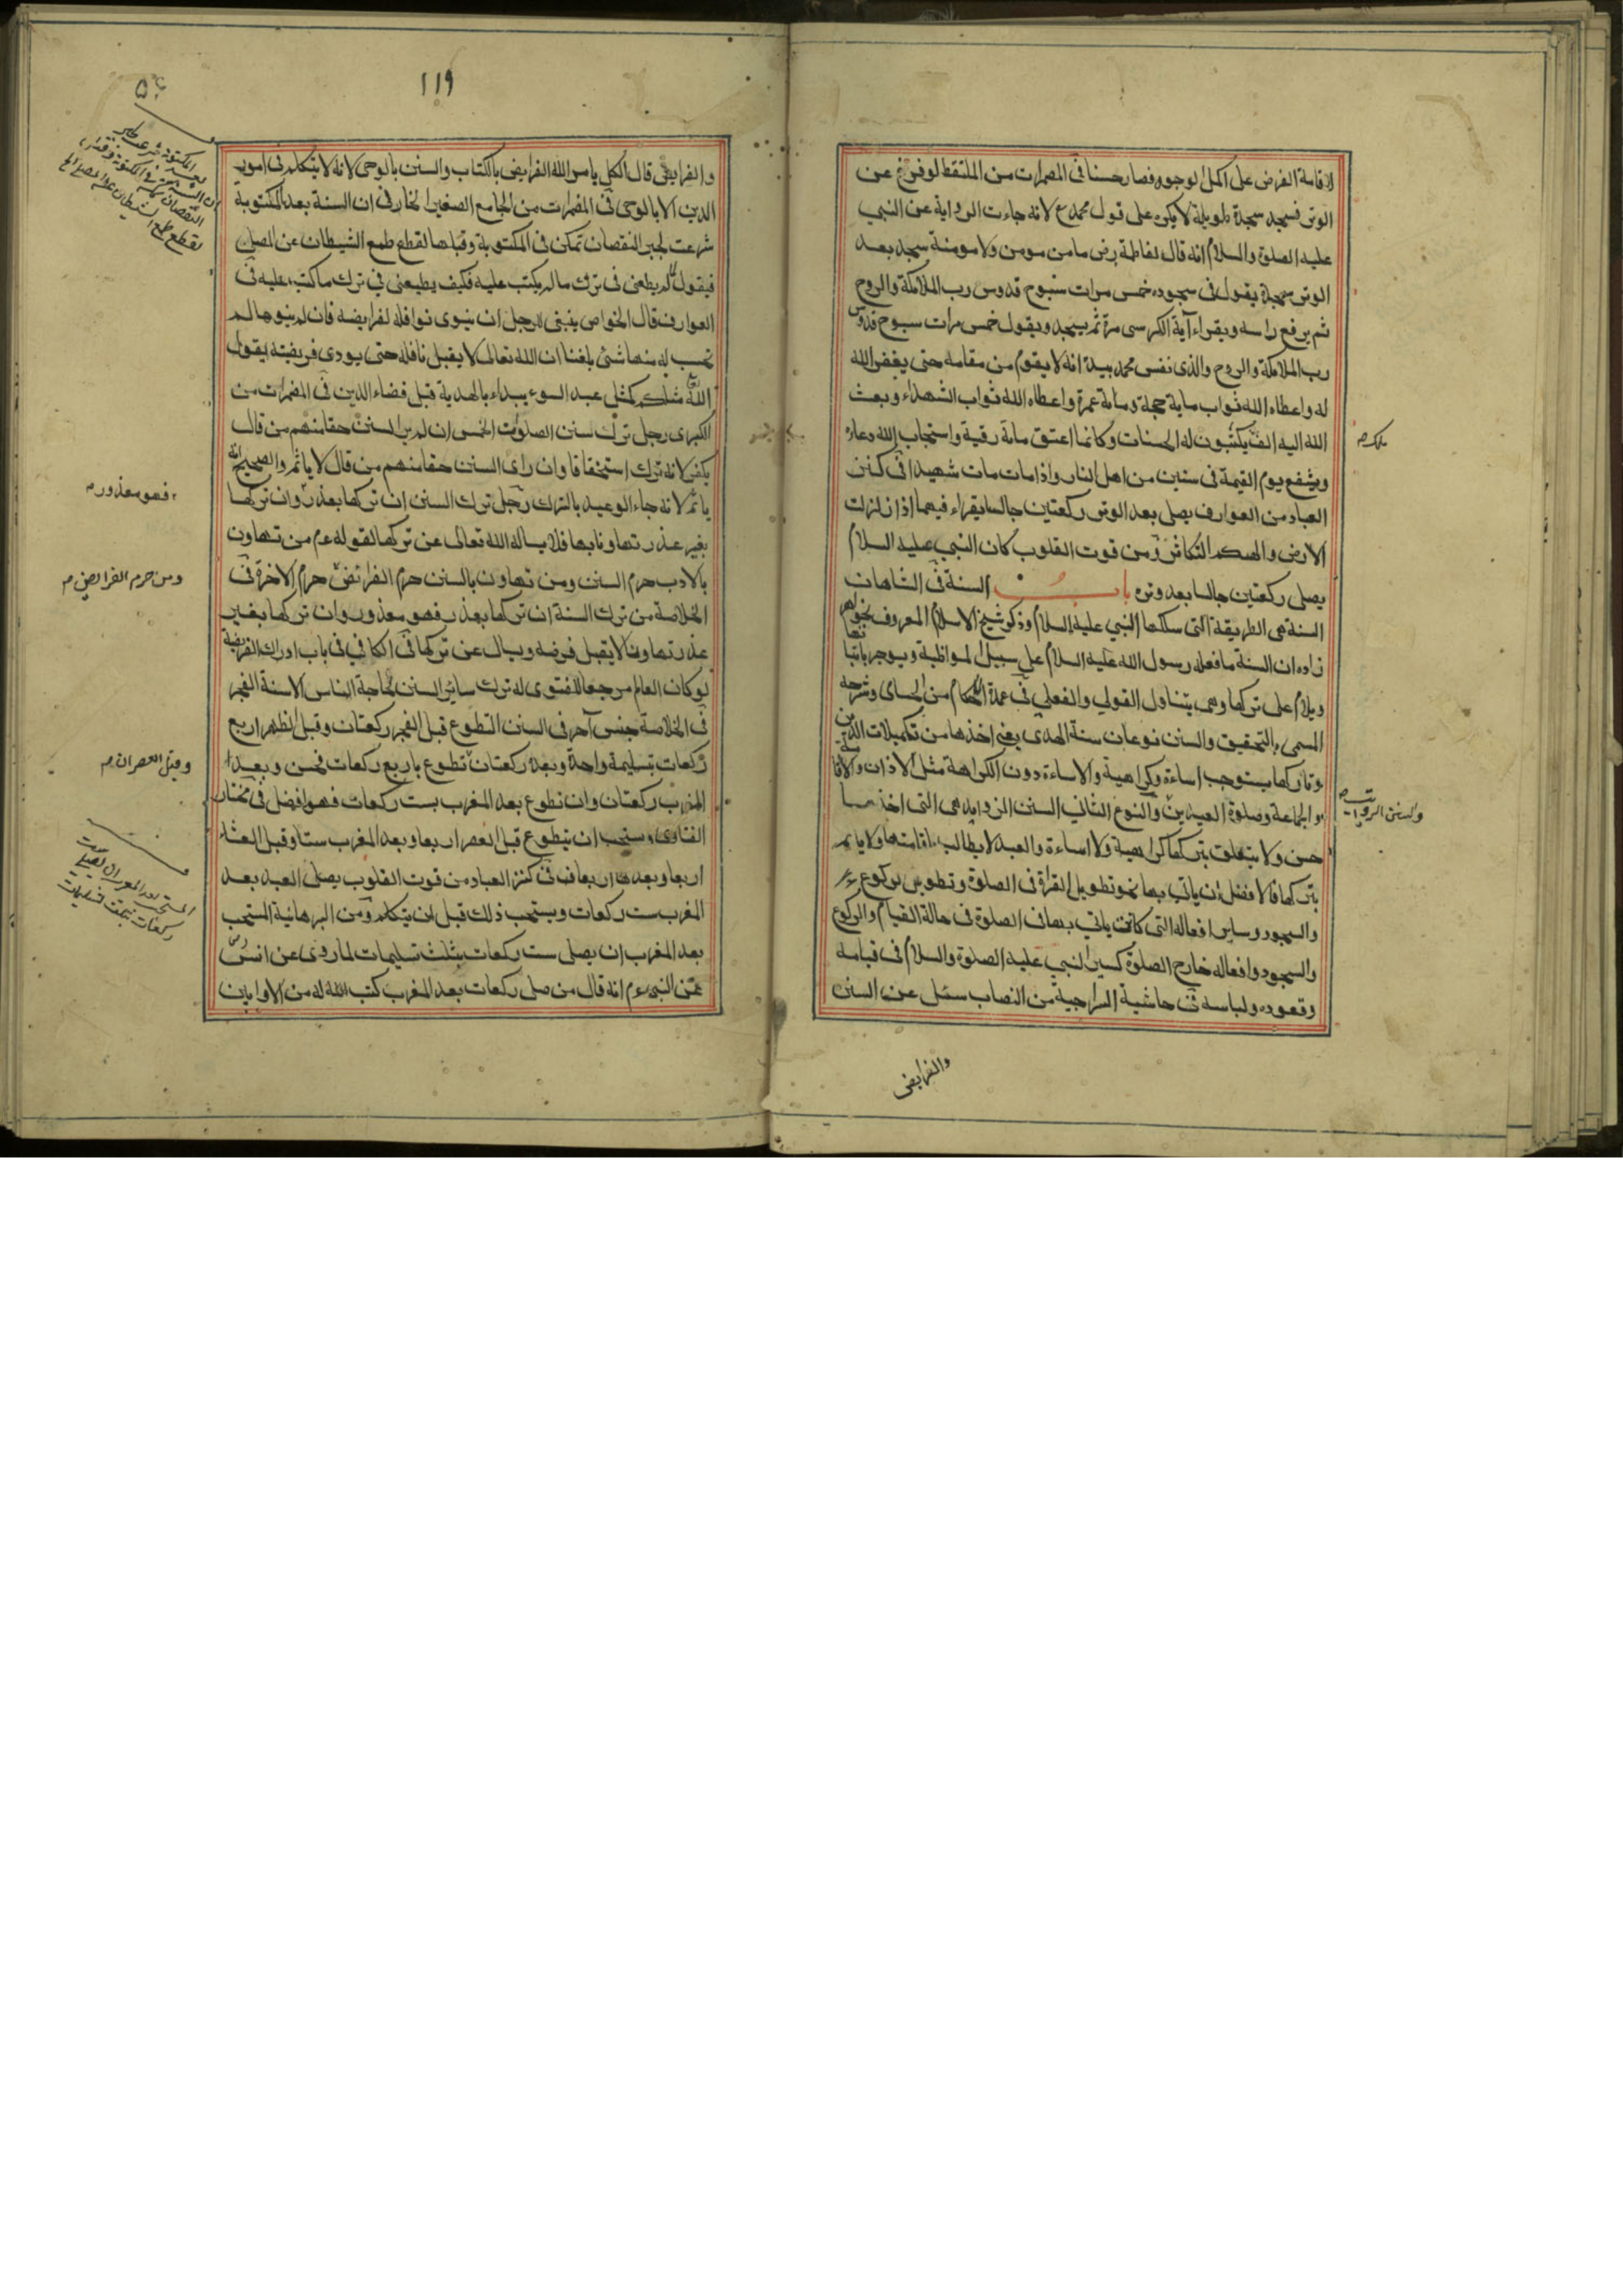 لاقامة الفرض على اكمل الوجوه فصار حسنا فى المضمرات من الملتقط لو فرغ عن
الوتر فسجد سجدة طويلة لا يكره على قول محمد ع لانه جاءت الرواية عن النبي
عليه الصلوة والسلام انه قال لفاطمة رض ما من مومن ولا مومنة سجد بعد
الوتر سجدة يقول فى سجوده خمس مرات سبوح قدوس رب الملائكة والروح
ثم يرفع راسه ويقراء آية الكرسى مرة ثم يسجد ويقول خمس مرات سبوح قدوس
رب الملائكة والروح والذى نفس محمد بيده انه لا يقوم من مقامه حتى يغفر الله
له واعطاه الله ثواب ماية حجة ومائة عمرة واعطاه الله ثواب الشهداء وبعث
الله اليه الف يكتبون له الحسنات وكانما اعتق مائة رقبة واستجاب الله دعاءه
ملك
ويشفع يوم القيمة فى ستين من اهل النار واذا مات مات شهيدا فى كنز
العباد من العوارف يصلى بعد الوتر ركعتين جالسا يقراء فيهما اذا زلزلت
الارض والهىكم التكاثر ومن قوت القلوب كان النبي عليه السلام
يصلى ركعتين جالسا بعد وتره باب السنة فى الشاهان
السنة هى الطريقة التى سلكها النبي عليه السلام وذكر شيخ الاسلام المعروف بخواهر
زاده ان السنة ما فعله رسول الله عليه السلام على سبيل المواظبة ويوجر باتيانها
ويلام على تركها وهى يتناول القولي والفعلي فى عمدة من الحسامى وشرحه
المسمى بالتحقيق والسنن نوعان سنة الهدى يعنى اخذها من تكميلات الدين
وتاركها يستوجب اساءة وكراهية والاساءة دون الكراهة مثل الاذان والاقامة
والجماعة وصلوة العيدين والنوع الثاني السنن الزوايد هى التى اخذها
والسنن الرواتب
حسن ولا يتعلق بتركها كراهية ولا اساءة والعبد لا يطالب باقامتها ولا ياثم
بتركها فالافضل ان ياتي بها نحو تطويل القراة فى الصلوة وتطويل الركوع
والسجود وساير افعاله التى كان ياتي بها فى الصلوة فى حالة القيام والركوع
والسجود وافعاله خارج الصلوة كسير النبي عليه الصلوة والسلام فى قيامه
وقعوده ولباسه فى حاشية السراجية من النصاب سئل عن السنن
والفرايض
١١٩
والفرايض قال الكل بامر الله الفرايض بالكتاب والسنن بالوحى لانه لا يتكلم فى امور
الدين الا بالوحى فى المضمرات من الجامع الصغير الخاز فى ان السنة بعد المكتوبة
شرعت لجبر النقصان تمكن فى المكتوبة وقبلها لقطع طمع الشيطان عن المصلى
فيقول لم يطعنى فى ترك ما لم يكتب عليه فكيف يطيعنى فى ترك ما كتب عليه فى
العوارف قال الخواص ينبغى للرجل ان ينوى نوافله لفرايضه فان لم ينوها لم
تحسب له منها شئ بلغنا ان الله تعالى لا يقبل نافلة حتى يودى فريضته يقول
الله مثلكم كمثل عبد السوء يبداء بالهدية قبل قضاء الدين فى المضمرات من
الكبرى رجل ترك سنن الصلوات الخمس ان لم ير السنن حقا منهم من قال
يكفر لانه ترك استخفافا وان راى السنن حقا منهم من قال لا ياثم والصحيح انه
ياثم لانه جاء الوعيد بالترك رجل ترك السنن ان تركها بعذر وان تركها
فهو معذور م
بغير عذر تهاونا بها فلا يساله الله تعالى عن تركها لقوله عم من تهاون
بالادب حرم السنن ومن تهاون بالسنن حرم الفرائض حرم الاخرة فى
ومن حرم الفرايض م
الخلاصة من ترك السنة ان تركها بعذر فهو معذور وان تركها بغير
عذر تهاونا لا يقبل فرضه ويسال عن تركها فى الكافي فى باب ادراك الفريضة
لو كان العالم مرجعا للفتوى له ترك ساير السنن لحاجة الناس الا سنة الفجر
فى الخلاصة جنس آخر فى السنن التطوع قبل الفجر ركعتان وقبل الظهر اربع
ركعات بتسليمة واحدة وبعده ركعتان تطوع باربع ركعات فحسن وبعد
وقبل العصر ان م
المغرب ركعتان وان تطوع بعد المغرب بست ركعات فهو افضل فى مختار
الفتاوى ويستحب ان يتطوع قبل العصر اربعا وبعد المغرب ستا وقبل العشاء
اربعا وبعدها اربعا فى كنز العباد من قوت القلوب يصلى العبد بعد
المغرب ست ركعات ويستحب ذلك قبل ان يتكلم ومن البرهانية المستحب
بعد المغرب ان يصلى ست ركعات بثلث تسليمات لما روى عن انس رض
عن النبي عم انه قال من صلى ركعات بعد المغرب كتب الله له من الاوابين